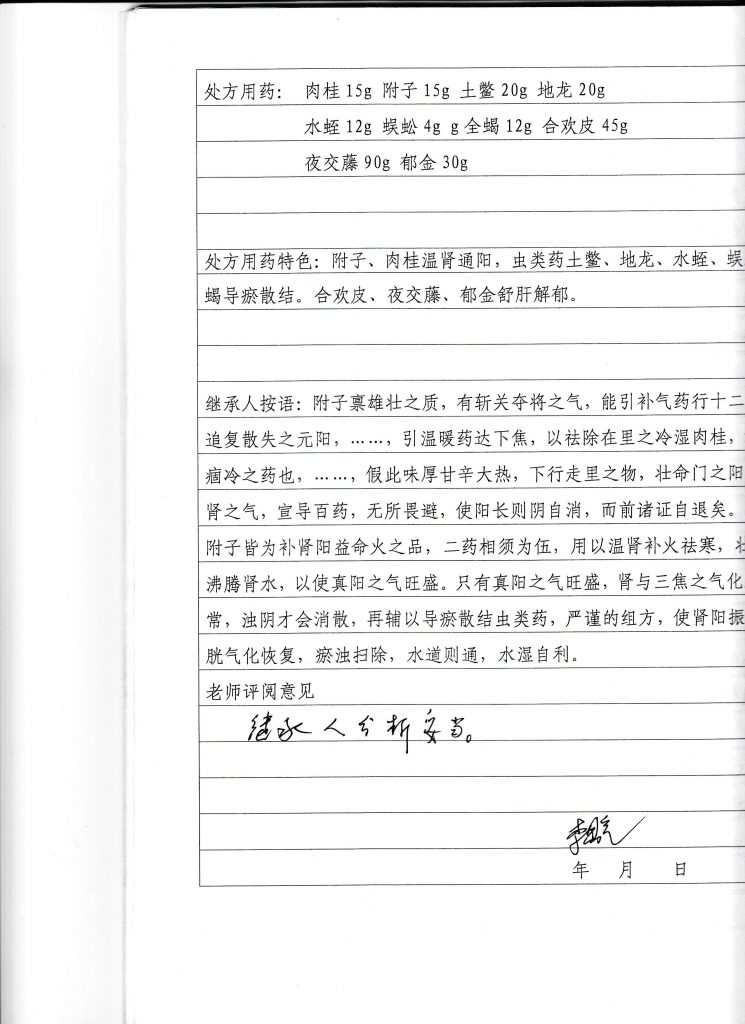 处方用药： 肉桂 15g 附子 15g 土鳖 20g 地龙 20g
水蛭 12g 蜈蚣 4g g 全蝎 12g 合欢皮 45g
夜交藤 90g 郁金 30g
处方用药特色：附子、肉桂温肾通阳，虫类药土鳖、地龙、水蛭、蜈
蝎导瘀散结。合欢皮、夜交藤、郁金舒肝解郁。
继承人按语：附子禀雄壮之质，有斩关夺将之气，能引补气药行十二
追复散失之元阳，……，引温暖药达下焦，以祛除在里之冷湿肉桂，
痼冷之药也，……，假此味厚甘辛大热，下行走里之物，壮命门之阳
肾之气，宣导百药，无所畏避，使阳长则阴自消，而前诸证自退矣。
附子皆为补肾阳益命火之品，二药相须为伍，用以温肾补火祛寒，壮
沸腾肾水，以使真阳之气旺盛。只有真阳之气旺盛，肾与三焦之气化
常，浊阴才会消散，再辅以导瘀散结虫类药，严谨的组方，使肾阳振
胱气化恢复，瘀浊扫除，水道则通，水湿自利。
老师评阅意见
继承人分析妥当。
年 月 日